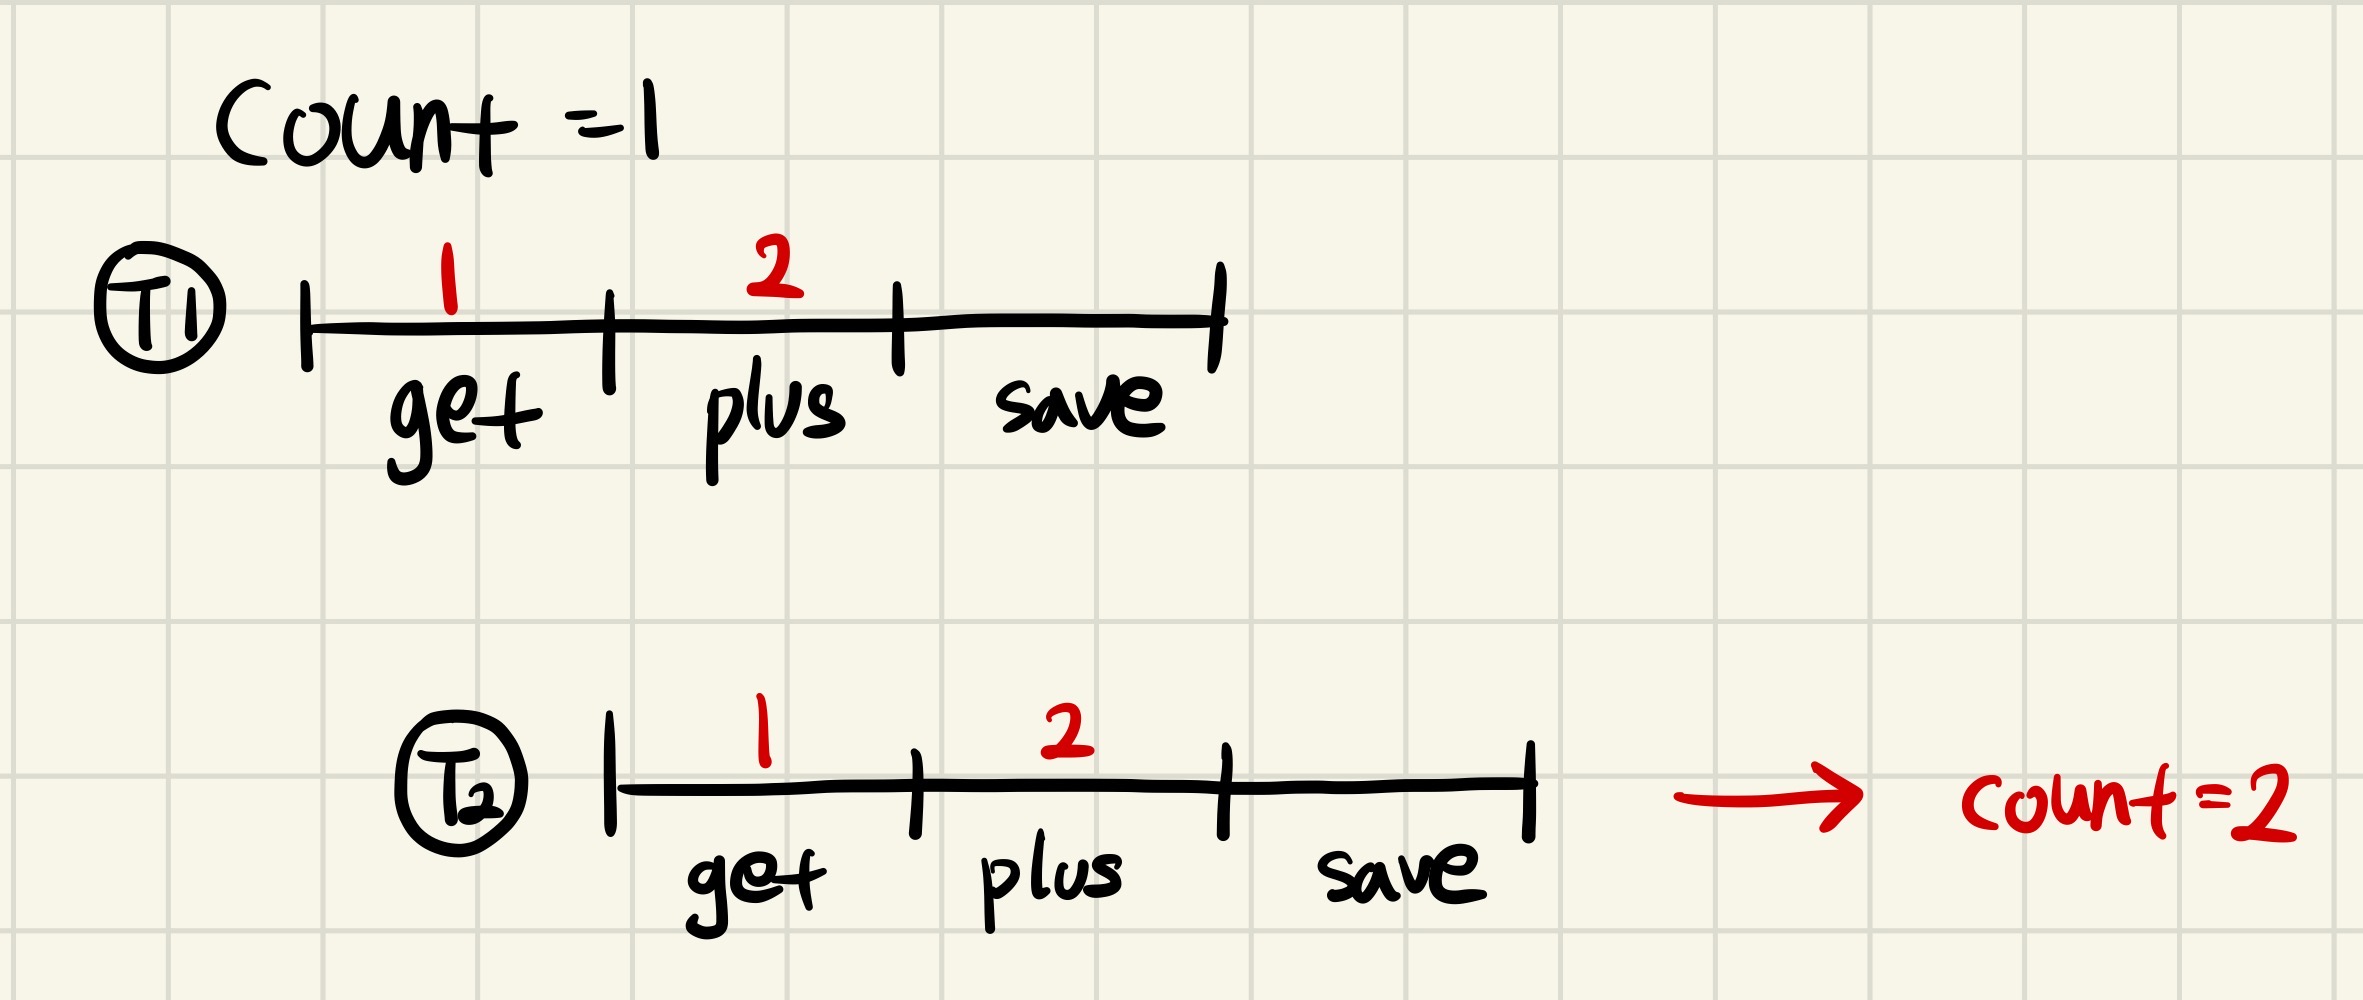 Count =1
T1
1 2
get plus save
T2
1 2
get plus save
count=2